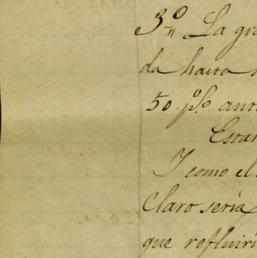 3º La gra
da hasta
50 pº/o
Estan
Y como el
Claro seria
que refluiri